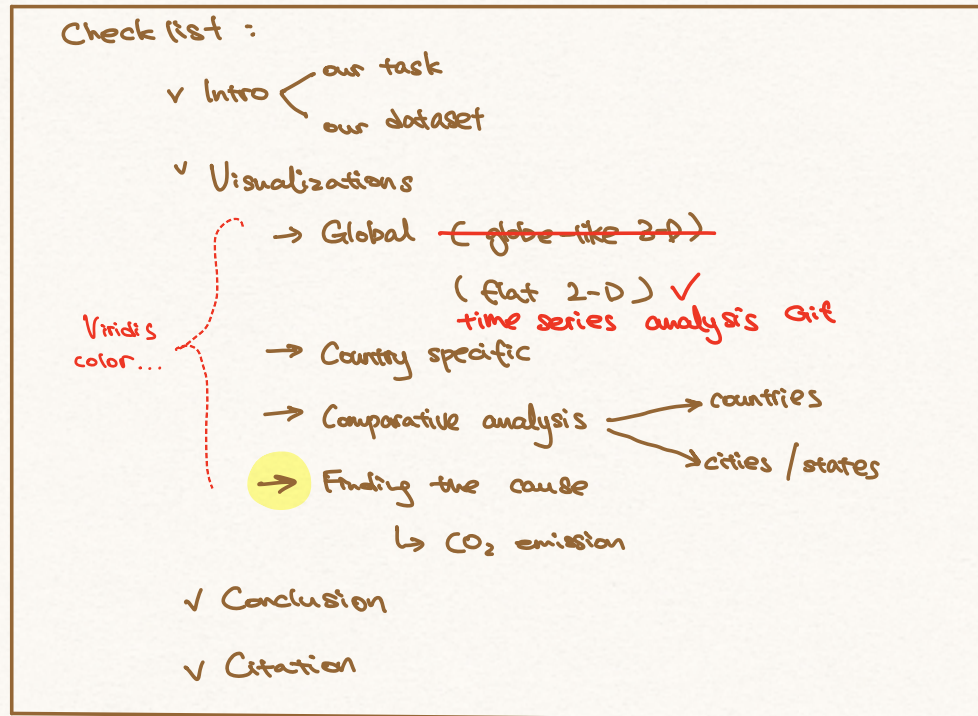 Checklist :
✓ Intro
our task
our dataset
✓ Visualizations
→ Global ( globe-like 3-D )
( flat 2-D ) ✓
time series analysis Gif
Viridis
color...
→ Country specific
→ Comparative analysis
→ countries
→ cities / states
→ Finding the cause
↳ CO₂ emission
✓ Conclusion
✓ Citation